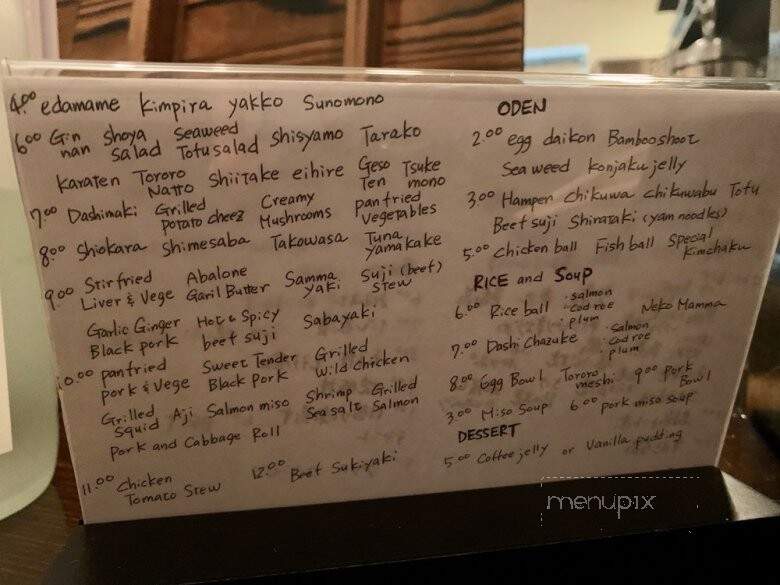 4.00 edamame kimpira yakko Sunomono
6.00 Gin Shoya Seaweed Shisyamo Tarako
nan Salad Tofu salad
Karaten Tororo Shiitake eihire Geso Tsuke
Natto Ten mono
7.00 Dashimaki Grilled Creamy panfried
potato cheez Mushrooms vegetables
8.00 Shiokara Shimesaba Takowasa Tuna
yamakake
9.00 Stirfried Abalone Samma Suji (beef)
Liver & Vege Garil Butter yaki Stew
Garlic Ginger Hot & Spicy Sabayaki
Black pork beef suji
10.00 panfried Sweet Tender Grilled
pork & Vege Black Pork Wild chicken
Grilled Aji Salmon miso Shrimp Grilled
Squid Sea salt Salmon
Pork and Cabbage Roll
11.00 Chicken 12.00 Beef Sukiyaki
Tomato Stew
ODEN
2.00 egg daikon Bamboo shoot
Sea weed konjaku jelly
3.00 Hampen chikuwa chikuwabu Tofu
Beef suji Shirataki (yam noodles)
5.00 Chicken ball Fish ball Special
Kimchaku
RICE and Soup
6.00 Rice ball · salmon Neko Mamma
· Cod roe
· plum
7.00 Dashi Chazuke · Salmon
· Cod roe
plum
8.00 Egg Bowl Tororo 9.00 Pork
meshi Bowl
3.00 Miso Soup 6.00 pork miso soup
DESSERT
5.00 Coffee jelly or Vanilla pudding
menupix